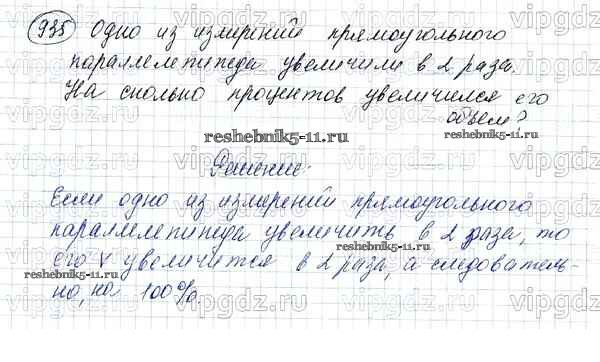 935 Одно из измерений прямоугольного
параллелепипеда увеличили в 2 раза.
На сколько процентов увеличился его
объем?
reshebnik5-11.ru
Решение:
Если одно из измерений прямоугольного
параллелепипеда увеличить в 2 раза, то
reshebnik5-11.ru
его V увеличится в 2 раза, а следователь-
reshebnik5-11.ru
но, на 100%.
vipgdz.ru